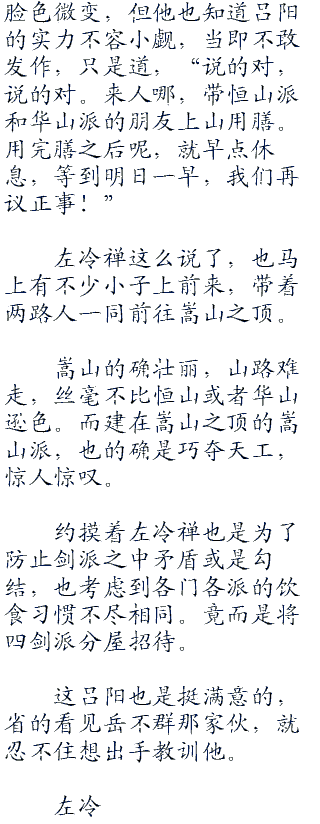 脸色微变，但他也知道吕阳
的实力不容小觑，当即不敢
发作，只是道，“说的对，
说的对。来人哪，带恒山派
和华山派的朋友上山用膳。
用完膳之后呢，就早点休
息，等到明日一早，我们再
议正事！”
左冷禅这么说了，也马
上有不少小子上前来，带着
两路人一同前往嵩山之顶。
嵩山的确壮丽，山路难
走，丝毫不比恒山或者华山
逊色。而建在嵩山之顶的嵩
山派，也的确是巧夺天工，
惊人惊叹。
约摸着左冷禅也是为了
防止剑派之中矛盾或是勾
结，也考虑到各门各派的饮
食习惯不尽相同。竟而是将
四剑派分屋招待。
这吕阳也是挺满意的，
省的看见岳不群那家伙，就
忍不住想出手教训他。
左冷